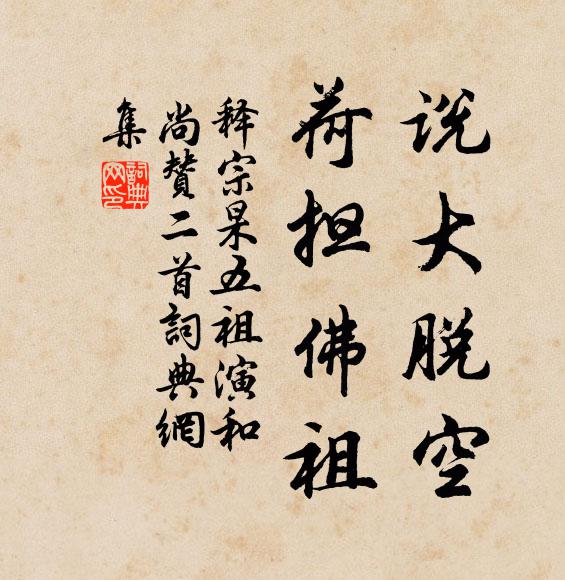 说大脱空
荷担佛祖
释宗杲五祖演和
尚赞二首詞典網
集
詞典
网印